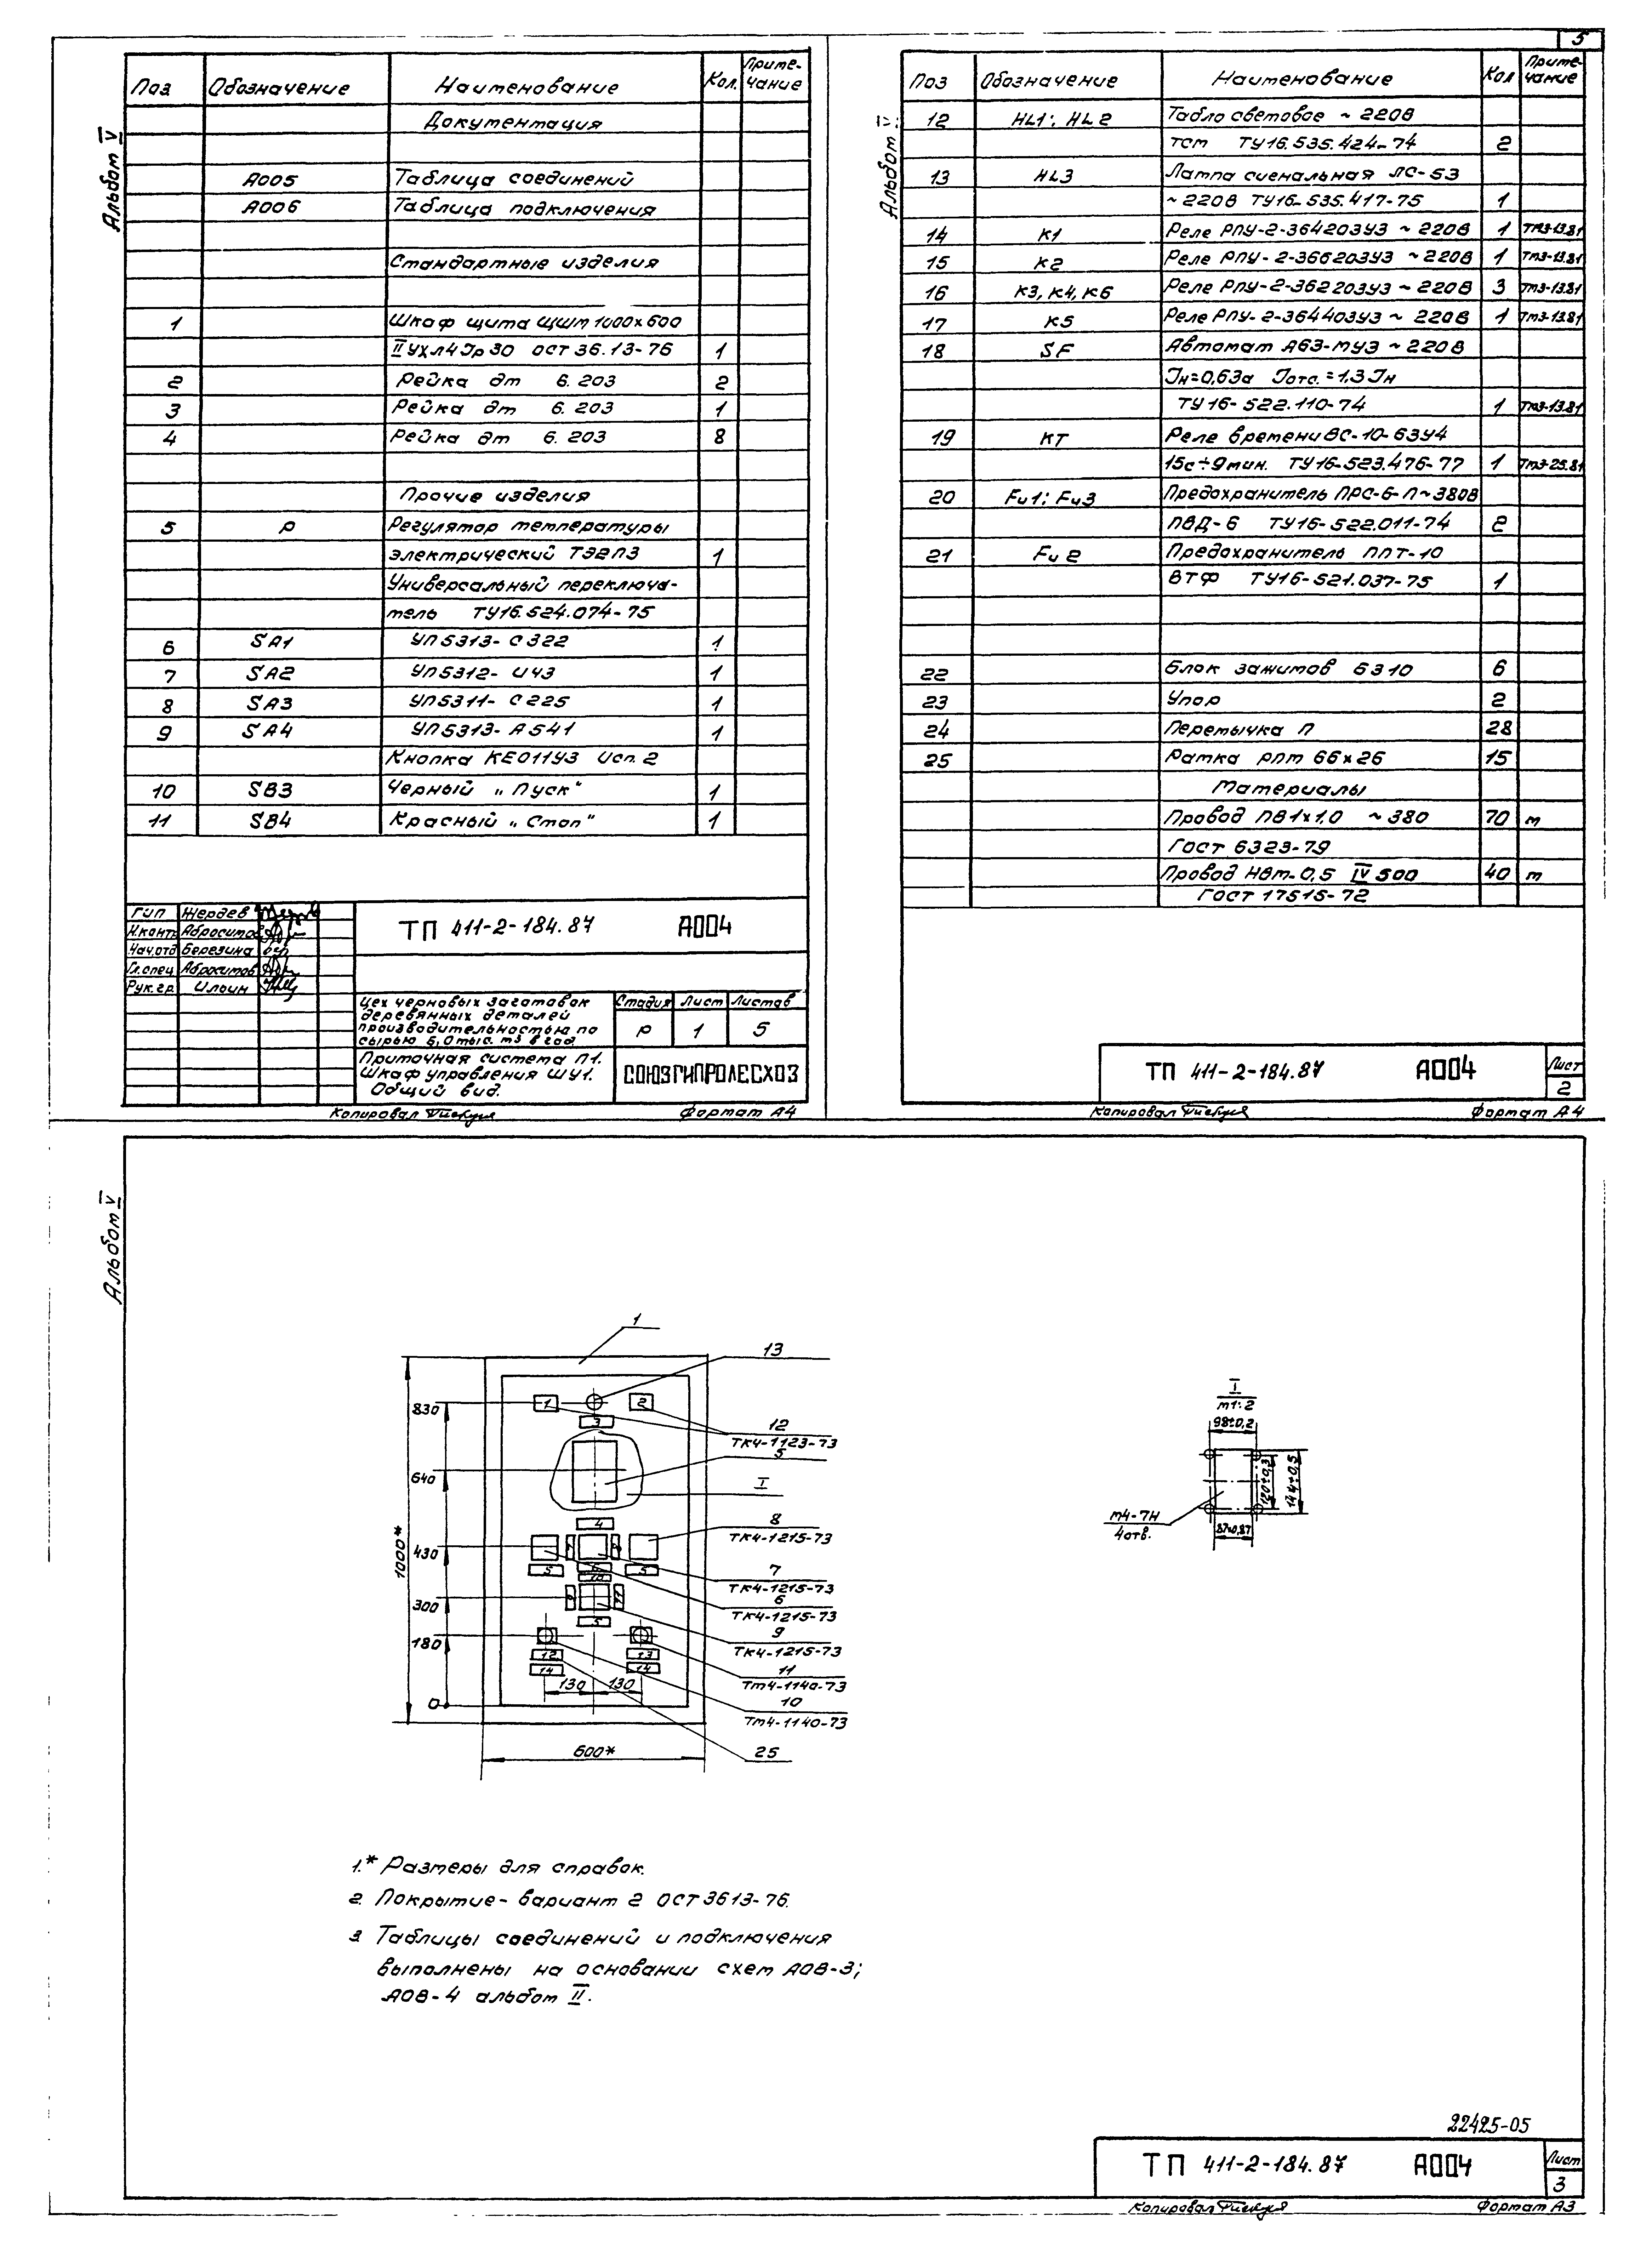 5
Альбом IV
Поз Обозначение Наименование Кол. Примечание
Документация
А005 Таблица соединений
А006 Таблица подключения
Стандартные изделия
1 Шкаф щита ЩШМ 1000х600
II УХЛ4 Jp30 ОСТ 36.13-76 1
2 Рейка дт 6.203 2
3 Рейка дт 6.203 1
4 Рейка дт 6.203 8
Прочие изделия
5 Р Регулятор температуры
электрический ТЭ2П3 1
Универсальный переключа-
тель ТУ16.524.074-75
6 SA1 УП5313-С322 1
7 SA2 УП5312-И43 1
8 SA3 УП5311-С225 1
9 SA4 УП5313-А541 1
Кнопка КЕ011У3 Исп.2
10 SB3 Черный „Пуск" 1
11 SB4 Красный „Стоп" 1
ГИП Жердев
Н.контр Абросимов
Нач.отд Березина
Гл.спец Абросимов
Рук.гр. Ильин
ТП 411-2-184.87 А004
Цех черновых заготовок
деревянных деталей
производительностью по
сырью 5,0 тыс. м3 в год
Стадия Лист Листов
Р 1 5
Приточная система П1.
Шкаф управления ШУ1.
Общий вид.
СОЮЗГИПРОЛЕСХОЗ
Копировал Формат А4
Альбом IV
Поз Обозначение Наименование Кол Примечание
12 HL1; HL2 Табло световое ~220В
тсм ТУ16.535.424-74 2
13 HL3 Лампа сигнальная ЛС-53
~220В ТУ16-535.417-75 1
14 К1 Реле РПУ-2-364203У3 ~220В 1 ТМ3-13.81
15 К2 Реле РПУ-2-366203У3 ~220В 1 ТМ3-13.81
16 К3, К4, К6 Реле РПУ-2-362203У3 ~220В 3 ТМ3-13.81
17 К5 Реле РПУ-2-364403У3 ~220В 1 ТМ3-13.81
18 SF Автомат А63-МУ3 ~220В
Jн=0,63а Jотс.=1,3 Jн
ТУ16-522.110-74 1 ТМ3-13.81
19 КТ Реле времени ВС-10-63У4
15с÷9мин. ТУ16-523.476-77 1 ТМ3-25.81
20 Fu1; Fu3 Предохранитель ПРС-6-П~380В
ПВД-6 ТУ16-522.011-74 2
21 Fu2 Предохранитель ППТ-10
ВТФ ТУ16-521.037-75 1
22 Блок зажимов Б310 6
23 Упор 2
24 Перемычка П 28
25 Рамка РПМ 66х26 15
Материалы
Провод ПВ1х1.0 ~380 70 м
ГОСТ 6323-79
Провод НВм-0,5 IV 500 40 м
ГОСТ 17515-72
ТП 411-2-184.87 А004 Лист
2
Копировал Формат А4
Альбом IV
1
13
830
1
2
3
12
ТК4-1123-73
5
640
I
4
8
ТК4-1215-73
1000*
430
5
5
7
ТК4-1215-73
10
6
ТК4-1215-73
300
5
9
ТК4-1215-73
180
12
13
14
14
11
ТМ4-1140-73
130 130
10
ТМ4-1140-73
0
600*
25
I
М1:2
98±0,2
120±0,3
144±0,5
М4-7Н
4отв.
87±0,87
1.* Размеры для справок.
2. Покрытие - вариант 2 ОСТ 3613-76.
3. Таблицы соединений и подключения
выполнены на основании схем АОВ-3;
АОВ-4 альбом II.
22425-05
ТП 411-2-184.87 А004 Лист
3
Копировал Формат А3